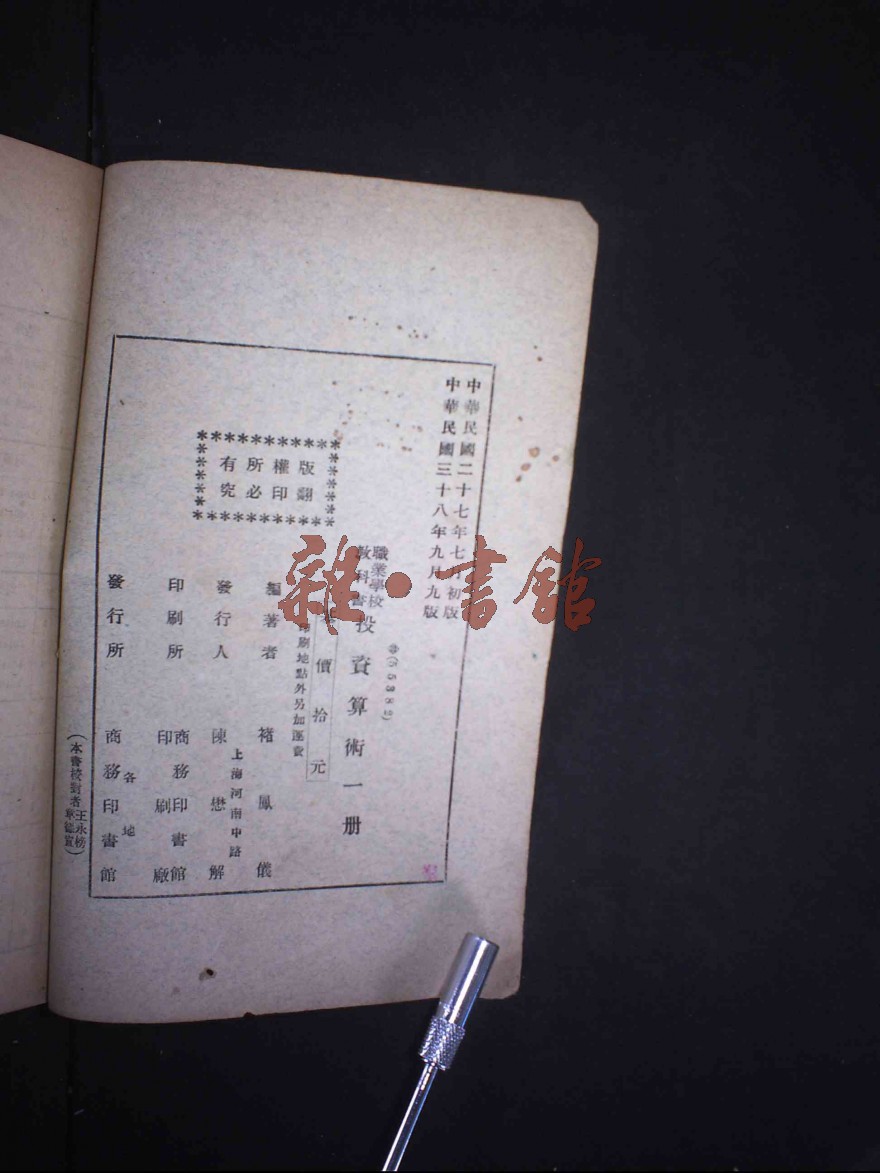 中華民國二十七年七月初版
中華民國三十八年九月九版
(55382)
職業學校
教科書
投資算術一册
價拾元
印刷地點外另加運費
版權所有
翻印必究
編著者 褚鳳儀
發行人 陳懋解
上海河南中路
印刷所 商務印書館
印刷廠
發行所 商務印書館
各地
(本書校對者王永榜
宣)
雜·書館